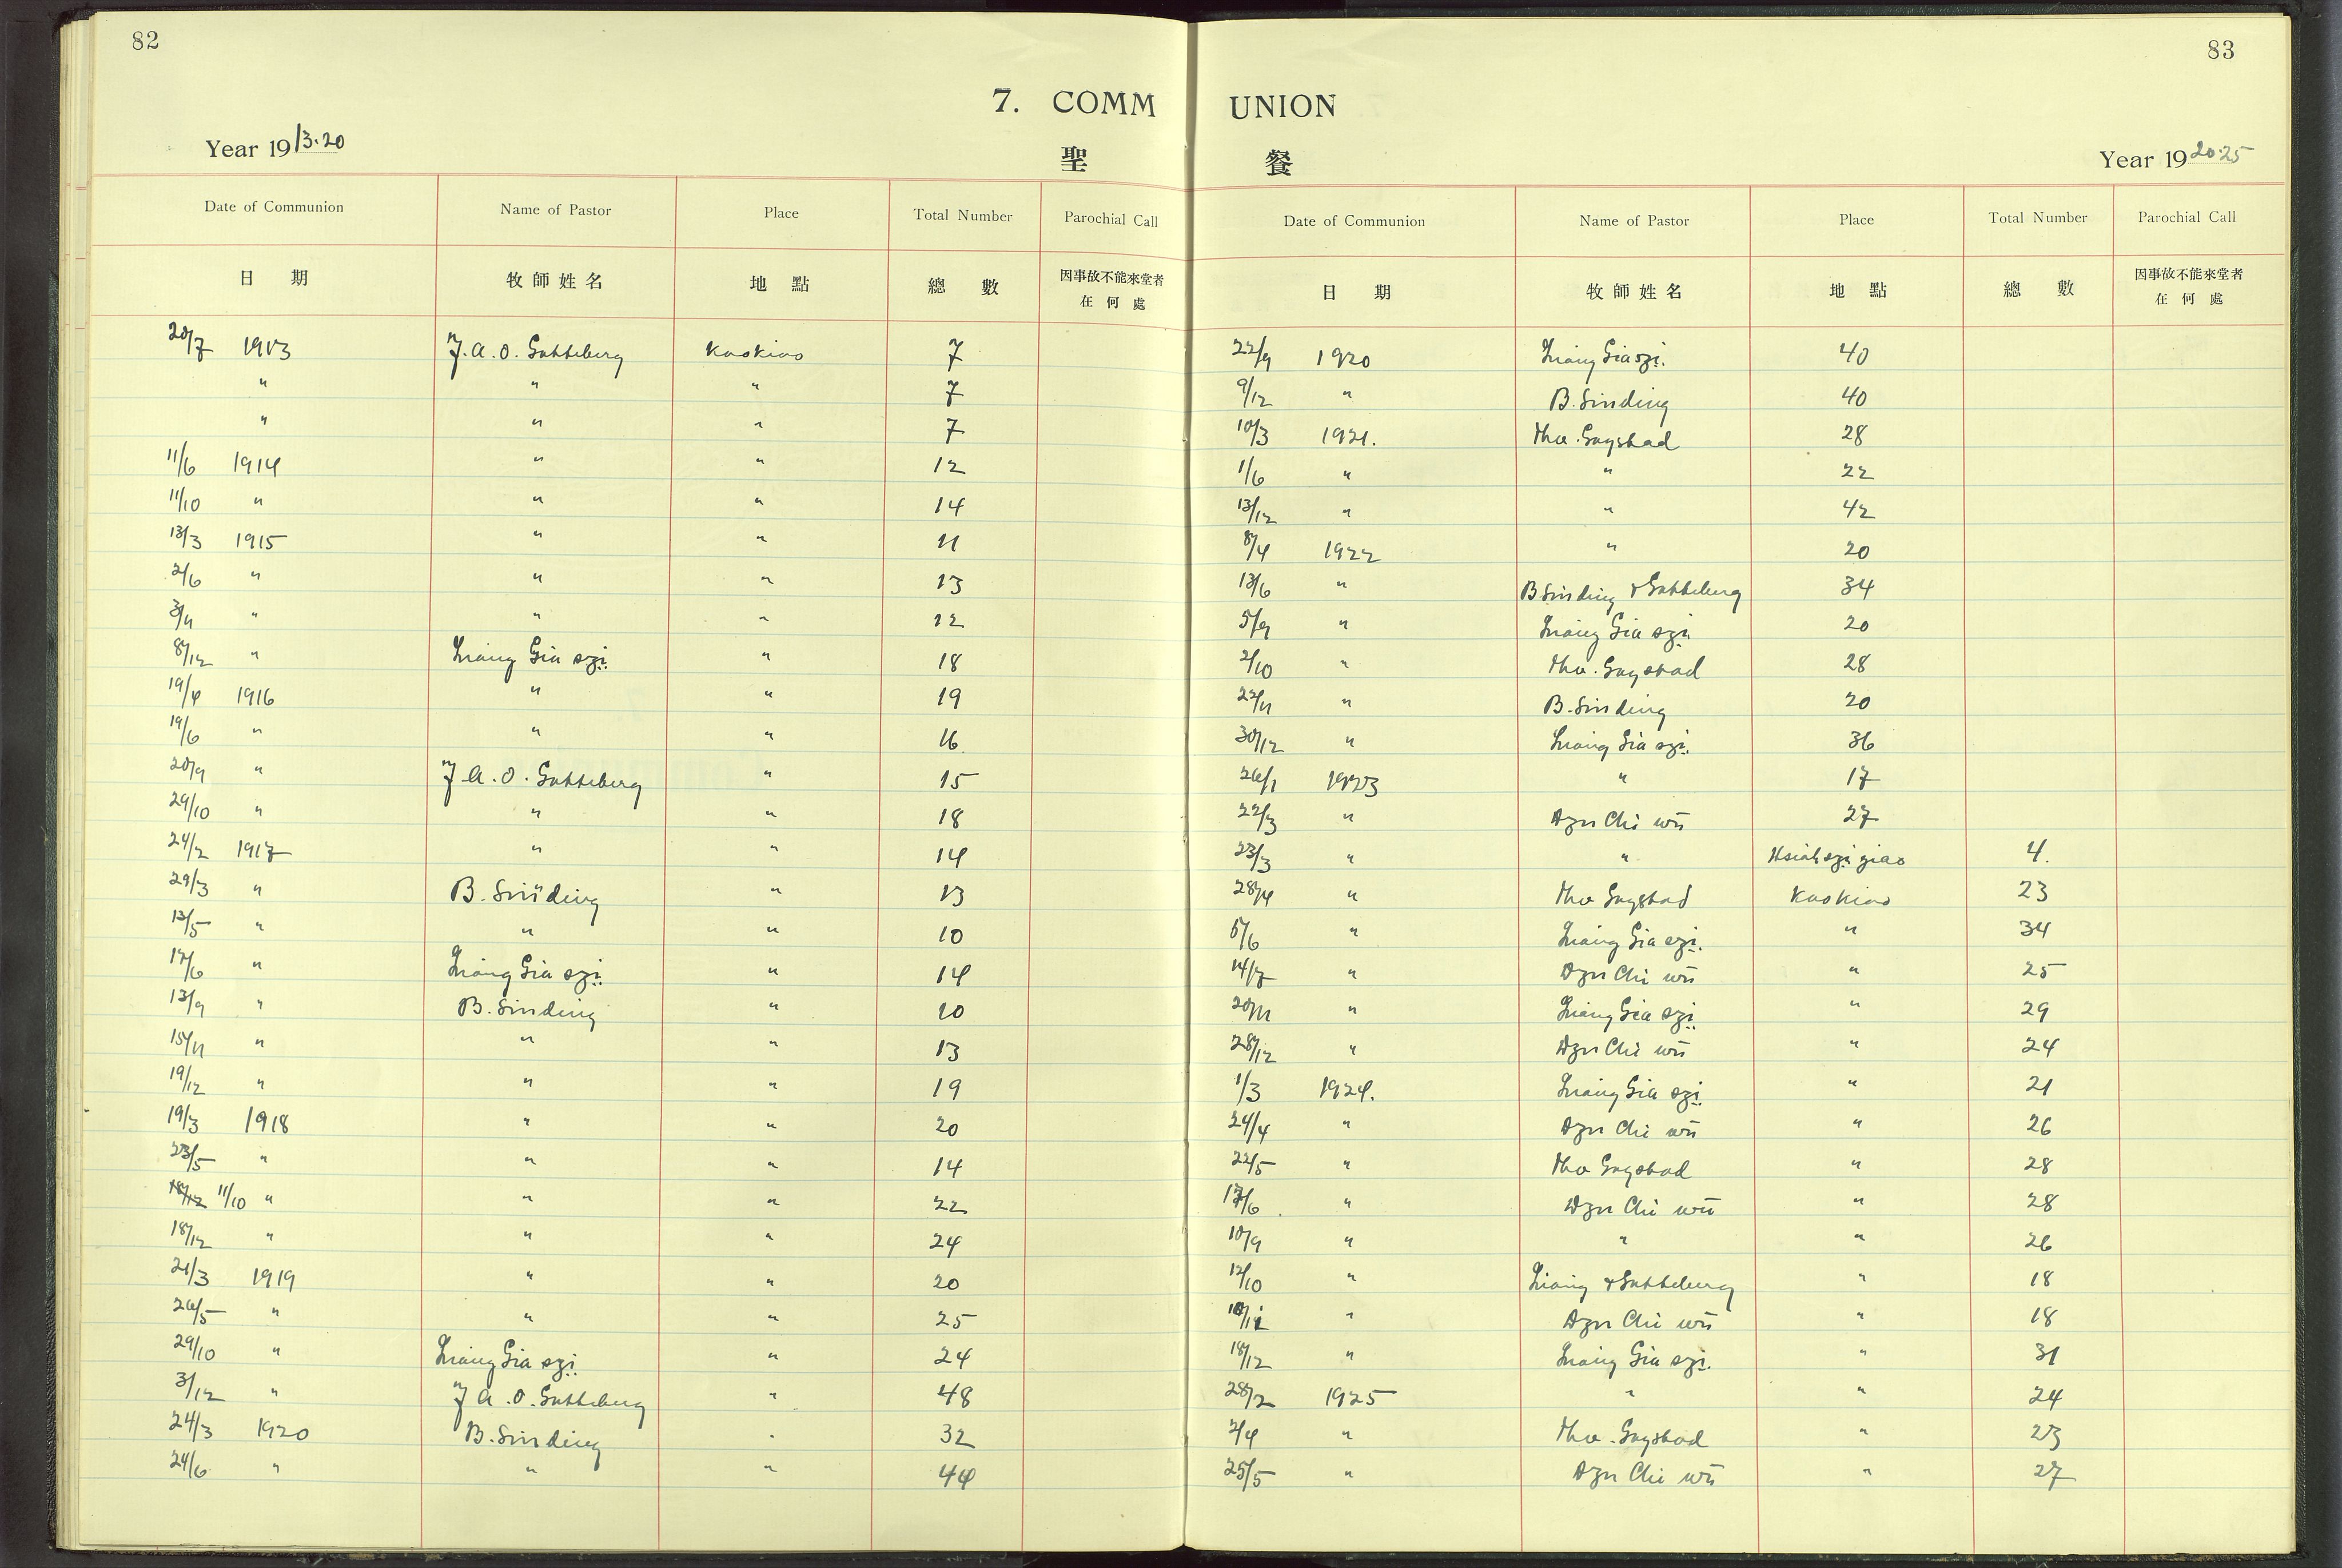 82
83
7. COMMUNION
聖餐
Year 1913.20
Year 1920.25
Date of Communion Name of Pastor Place Total Number Parochial Call
日期 牧師姓名 地點 總數 因事故不能來堂者在何處
20/7 1913 J.A.O. Gotteberg Kaokiao 7
" " " 7
" " " 7
11/6 1914 " " 12
11/10 " " " 14
13/3 1915 " " 11
2/6 " " " 13
3/11 " " " 12
8/12 " Liäng Gia szi. " 18
19/4 1916 " " 19
19/6 " " " 16
20/9 " J.A.O. Gotteberg " 15
29/10 " " " 18
24/2 1917 " " 14
29/3 " B. Sinding " 13
13/5 " " " 10
17/6 " Liäng Gia szi. " 14
13/9 " B. Sinding " 10
15/11 " " " 13
19/12 " " " 19
19/3 1918 " " 20
23/5 " " " 14
18/12 11/10 " " " 22
18/12 " " " 24
21/3 1919 " " 20
26/5 " " " 25
29/10 " Liäng Gia szi. " 24
3/12 " J.A.O. Gotteberg " 48
24/3 1920 B. Sinding " 32
24/6 " " " 44
Date of Communion Name of Pastor Place Total Number Parochial Call
日期 牧師姓名 地點 總數 因事故不能來堂者在何處
22/9 1920 Liäng Gia szi. 40
9/12 " B. Sinding 40
10/3 1921. Thv. Gogstad 28
1/6 " " 22
13/12 " " 42
8/4 1922 " 20
13/6 " B Sinding & Gotteberg 34
5/9 " Liäng Gia szi 20
2/10 " Thv. Gogstad 28
22/11 " B. Sinding 20
30/12 " Liäng Gia szi. 36
26/1 1923 " 17
22/3 " Dzu Chi wü 27
23/3 " " Hsiäh szi giao 4.
28/4 " Thv Gogstad Kaokiao 23
5/6 " Liäng Gia szi. " 34
14/7 " Dzu Chi wü " 25
20/11 " Liäng Gia szi " 29
28/12 " Dzu Chi wü " 24
1/3 1924. Liäng Gia szi " 21
24/4 " Dzu Chi wü " 26
22/5 " Thv Gogstad " 28
17/6 " Dzu Chi wü " 28
10/9 " " " 26
12/10 " Liäng & Gotteberg " 18
" Dzu Chi wü " 18
18/12 " Liäng Gia szi. " 31
28/2 1925 " " 24
2/4 " Thv. Gogstad " 23
25/5 " Dzu Chi wü " 27